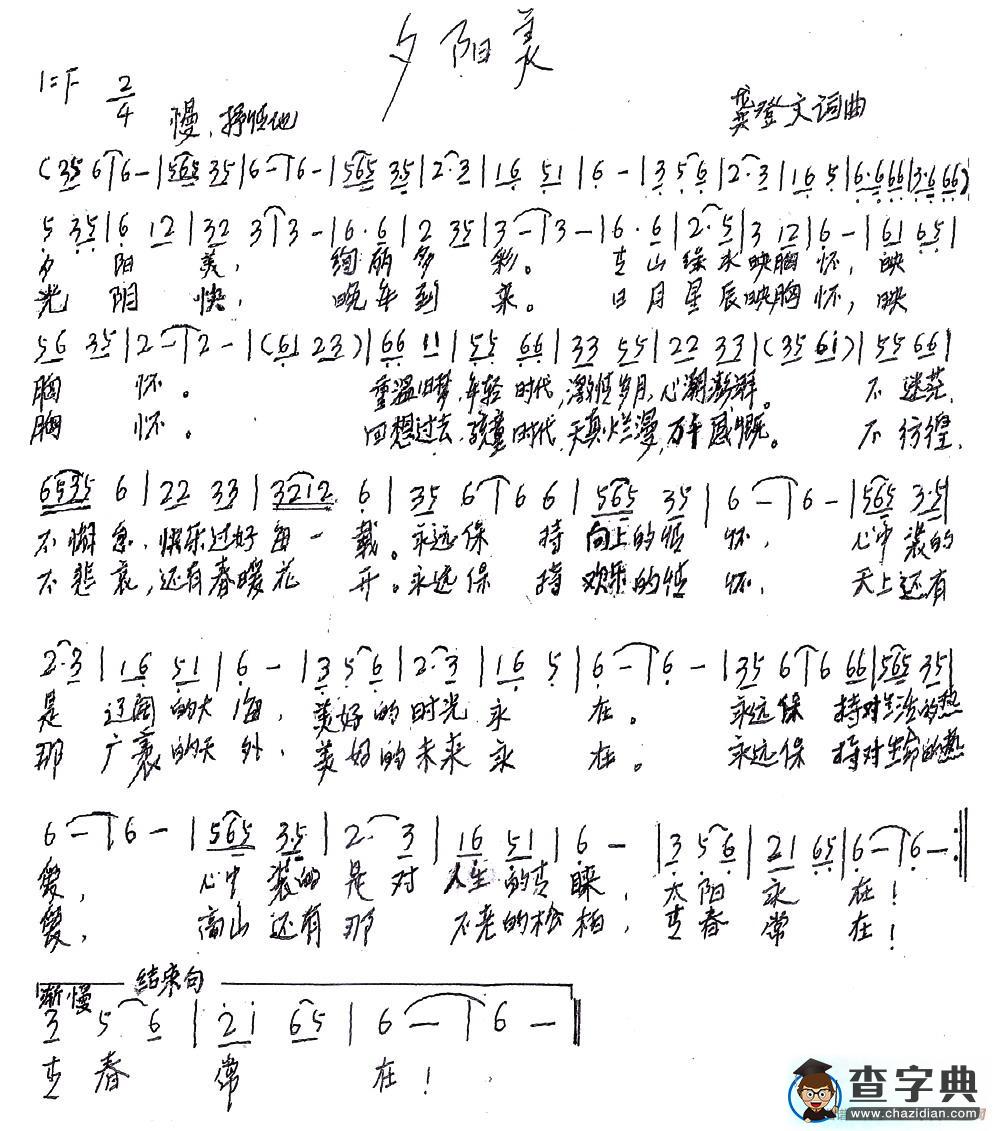 夕阳美
1=F 2/4 慢、抒情地 龚登文词曲
(35 6|6 -|565 35|6 -|6 -|565 35|2·3|16 51|6 -|3 56|2·3|16 5|6·666|3·666)
5 35|6 12|32 3|3 -|6·6|2 35|3 -|3 -|6·6|2·5|3 12|6 -|61 65|
夕阳美，绚丽多彩。青山绿水映胸怀，映
光阴快，晚年到来。日月星辰映胸怀，映
56 35|2 -|2 -|(61 23)|66 11|55 66|33 55|22 33|(35 61)|55 66|
胸怀。重温旧梦，年轻时代，激情岁月，心潮澎湃。不迷茫，
胸怀。回想过去，孩童时代，天真烂漫，万千感慨。不彷徨，
6535 6|22 33|3212 6|35 6|6 6|565 35|6 -|6 -|565 3·5|
不懈怠，快乐过好每一载。永远保持向上的情怀，心中装的
不悲哀，还有春暖花开。永远保持欢乐的情怀，天上还有
2·3|16 51|6 -|3 56|2·3|16 5|6 -|6 -|35 6|6 66|565 35|
是辽阔的大海，美好的时光永在。永远保持对生活的热
那广袤的天外，美好的未来永在。永远保持对生命的热
6 -|6 -|565 3·5|2· 3|16 51|6 -|3 56|21 65|6 -|6 -:||
爱，心中装的是对人生的青睐，太阳永在！
爱，高山还有那不老的松柏，青春常在！
渐慢 结束句
3 5 6|21 65|6 -|6 -||
青春常在！
查字典
www.chazidian.com